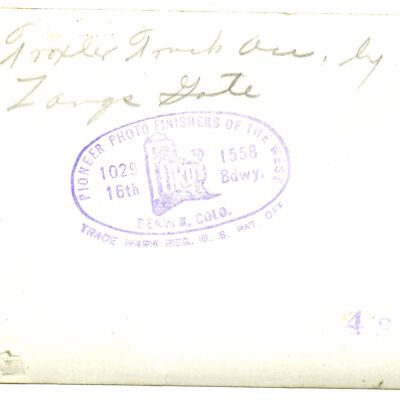 Troxler Truck Acc. by
Zangs Gate
PIONEER PHOTO FINISHERS OF THE WEST
1029
16th
1558
Bdwy.
DENVER, COLO.
TRADE MARK REG. U. S. PAT. OFF
4